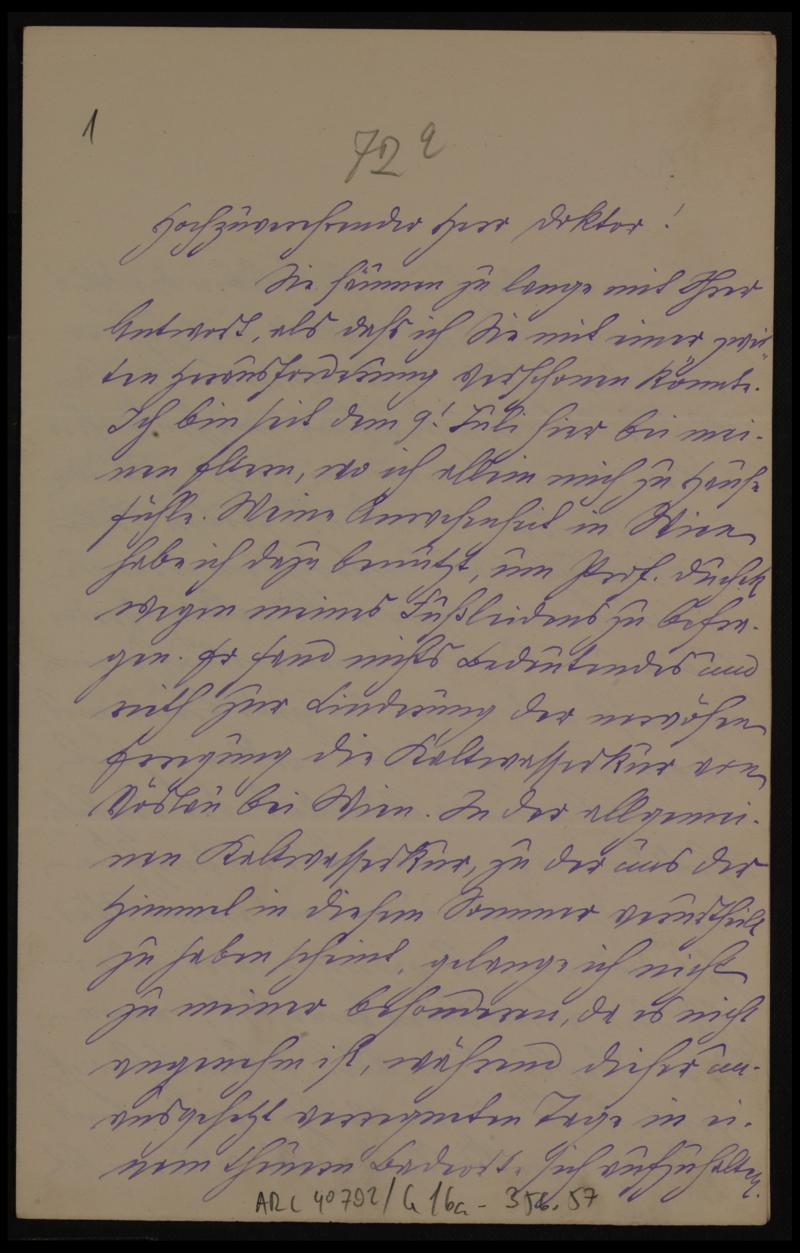 1
72a
Hochzuverehrender Herr Doktor!
Sie säumen zu lange mit Ihrer
Antwort, als daß ich Sie mit einer zwei-
ten Herausforderung verschonen könnte.
Ich bin seit dem 9! Juli hier bei mei-
nen Eltern, wo ich allein mich zu Hause
fühle. Meine Anwesenheit in Wien
habe ich dazu benützt, um Prof. Duchek
wegen meines Fußleidens zu befra-
gen. Er fand nichts Bedeutendes und
rieth zur Linderung der nervösen
Erregung die Kaltwasserkur von
Vöslau bei Wien. In der allgemei-
nen Kaltwasserkur, zu der uns der
Himmel in diesem Sommer verurtheilt
zu haben scheint, gelange ich nicht
zu meiner besonderen, da es nicht
angenehm ist, während dieser un-
ausgesetzt verregneten Tage in ei-
nem theuern Badeort sich aufzuhalten.
ARC 40792/G16a - 356.57